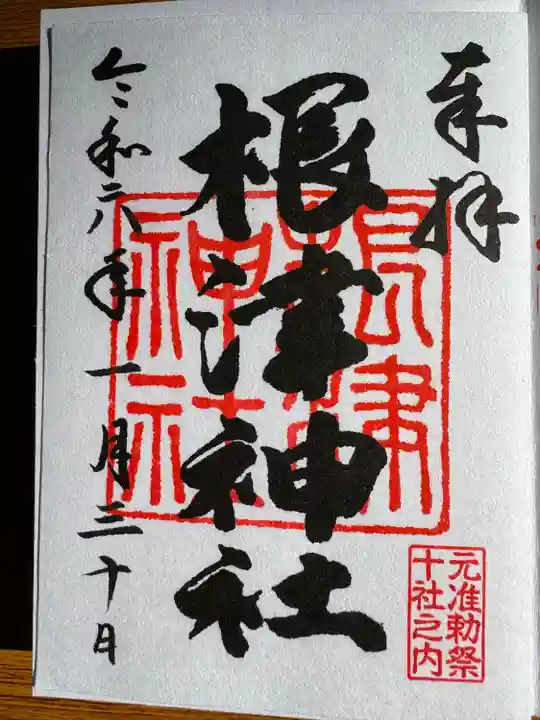 奉拝
根津神社
根津神社
元准勅祭
十社之内
令和六年一月三十日